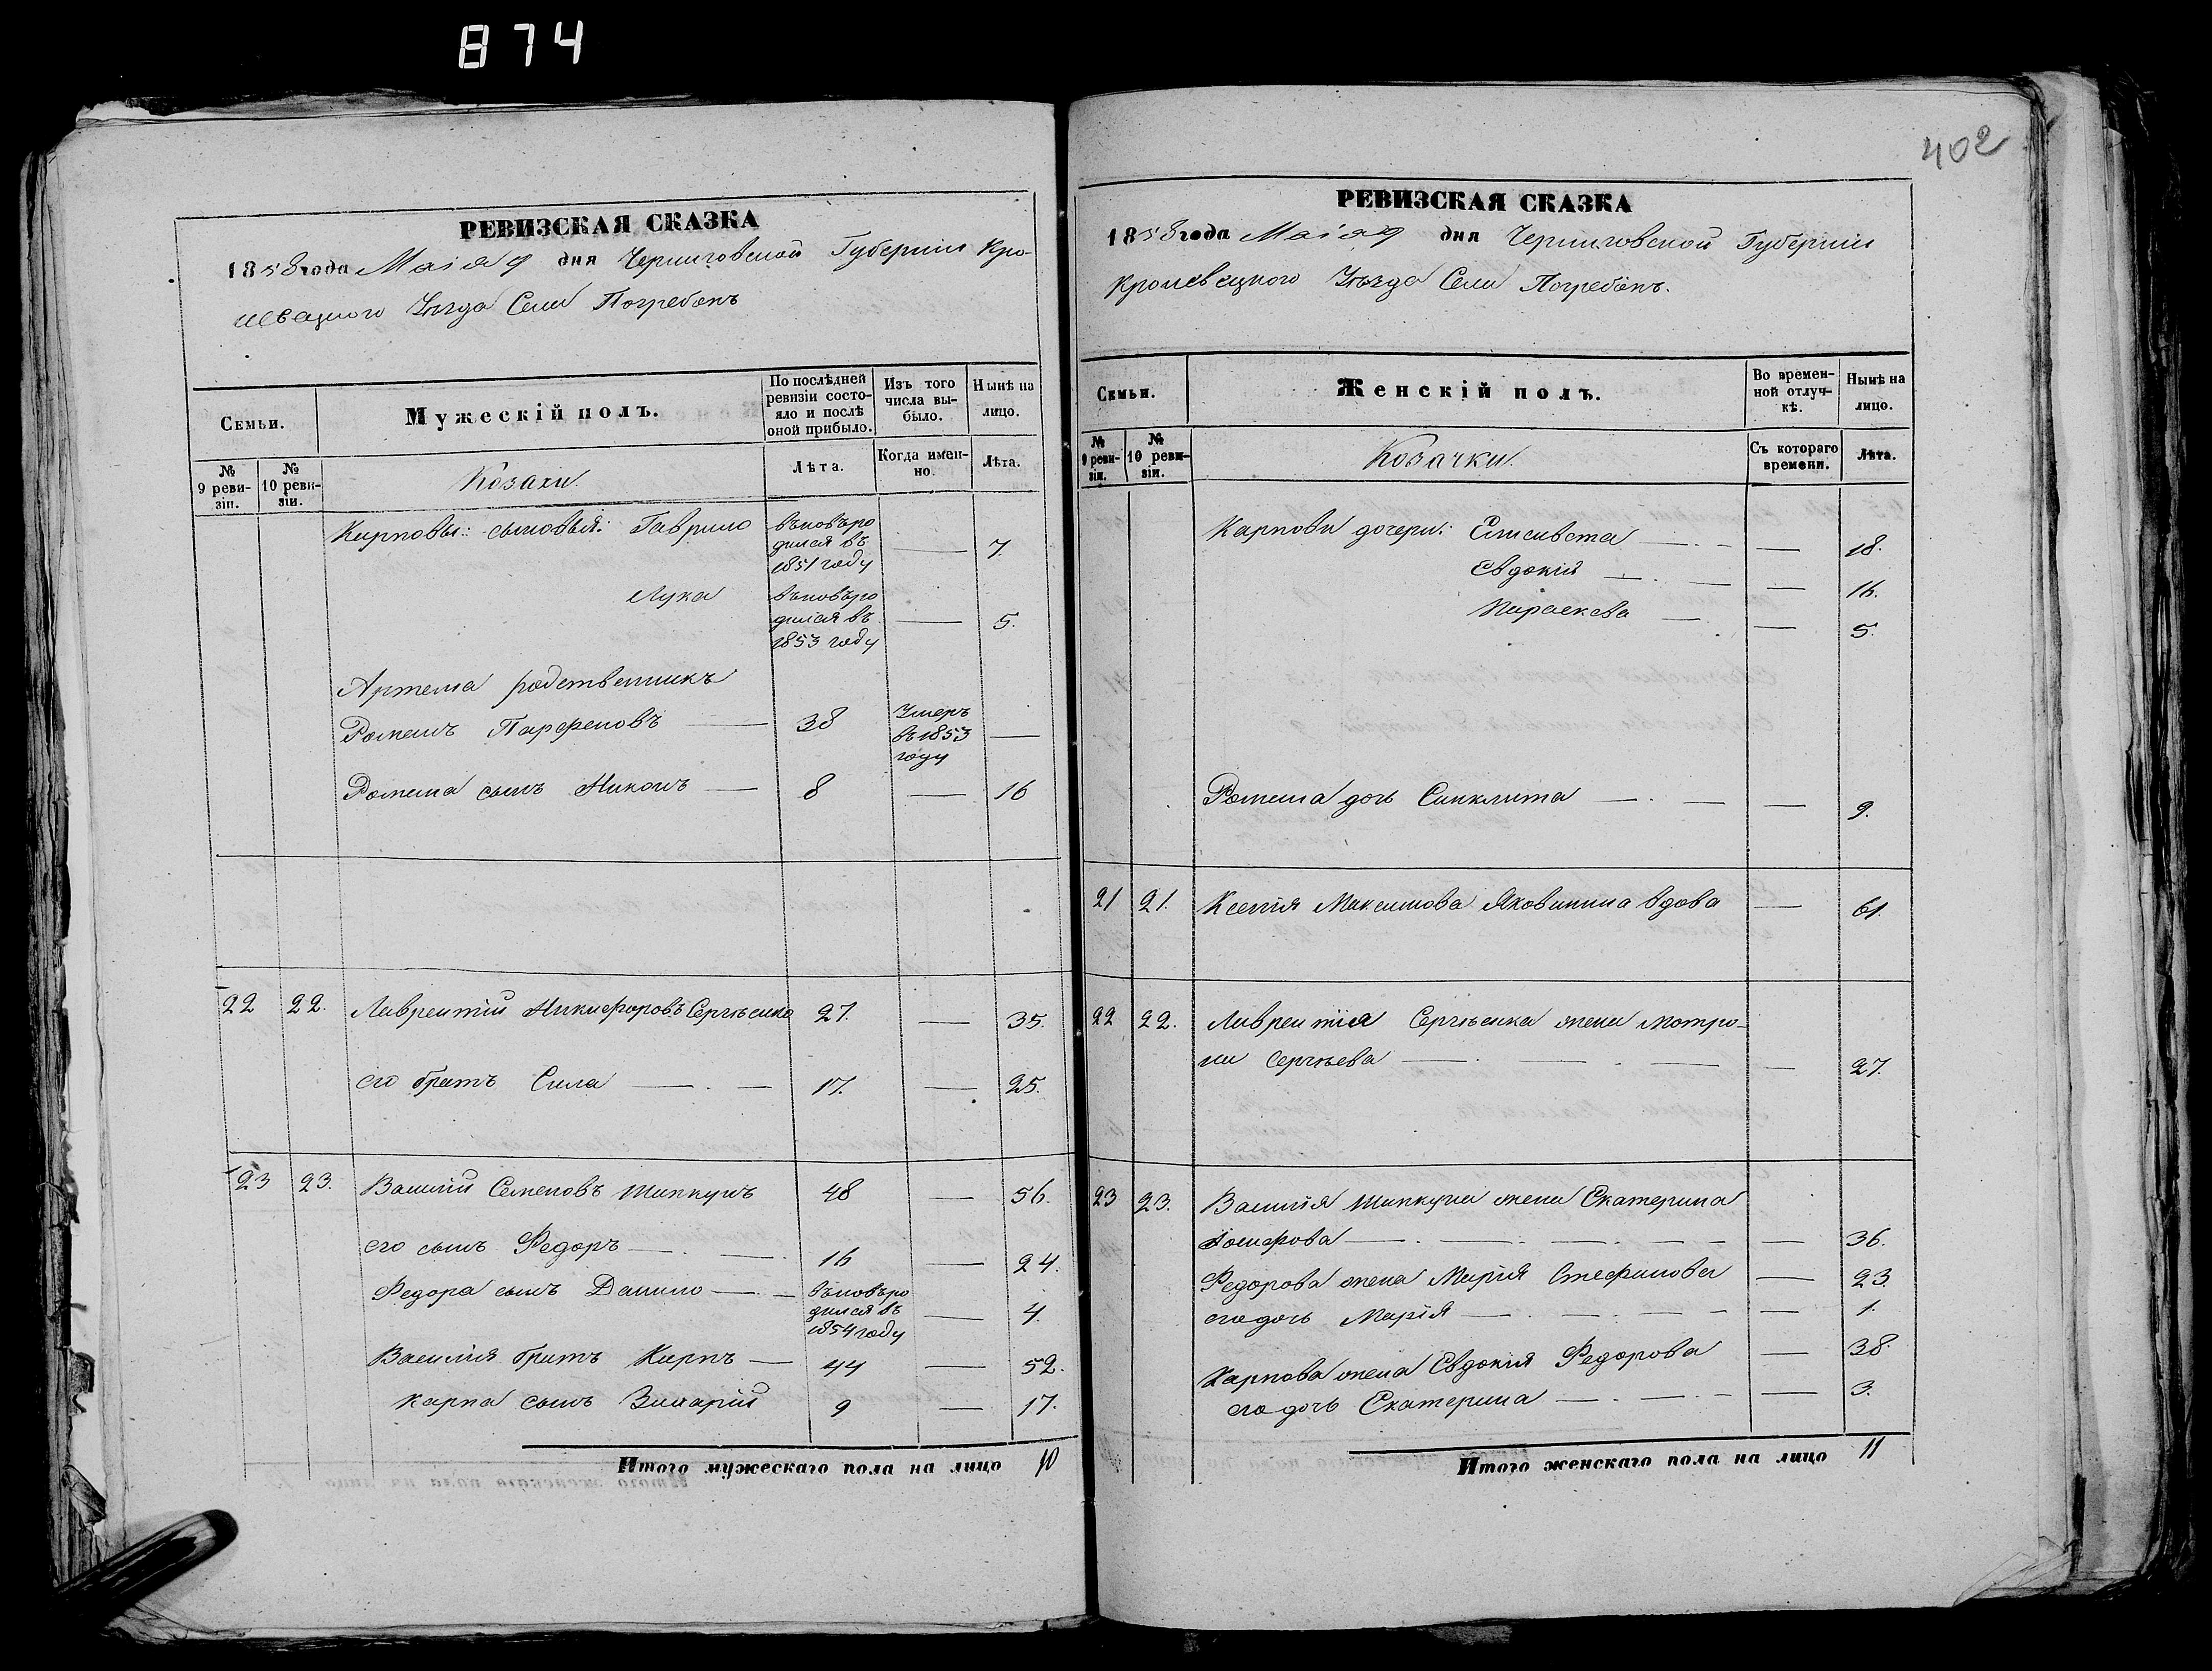 874
402
РЕВИЗСКАЯ СКАЗКА
1858 года Маія 9 дня Черниговской Губерніи Кро-
левецкого Уѣзда Села Погребокъ
Семьи.
Мужескій полъ.
По послѣдней ревизіи состо-яло и послѣ оной прибыло.
Изъ того числа вы-было.
Нынѣ на лицо.
№ 9 реви-зіи.
№ 10 реви-зіи.
Козаки.
Лѣта.
Когда имен-но.
Лѣта.
Карповы: сыновья: Гаврило вьновьро
дился въ — 7.
1851 году
Лука вьновьро
дился въ — 5.
1853 году
Артема родственникъ
Романъ Парфеновъ — 38 Умеръ въ 1853 году —
Романа сынъ Никонъ — 8 — 16
22 22. Лаврентій Никифоровъ Сергѣенко 27. — 35.
его братъ Сила — 17. — 25.
23 23. Василій Семеновъ Шапкунъ 48 — 56.
его сынъ Федоръ — 16 — 24.
Федора сынъ Данило — вьновьро
дился въ — 4.
1854 году
Василія братъ Карпъ — 44 — 52.
Карпа сынъ Захарій 9 — 17.
Итого мужескаго пола на лицо 10
РЕВИЗСКАЯ СКАЗКА
1858 года Маія 9 дня Черниговской Губерніи
Кролевецкого Уѣзда Села Погребокъ.
Семьи.
Женскій полъ.
Во времен-ной отлуч-кѣ.
Нынѣ на лицо.
№ 9 реви-зіи.
№ 10 реви-зіи.
Козачки.
Съ котораго времени.
Лѣта.
Карпови дочери: Елисавета — — 18.
Евдокія — — 16.
Параскева — — 5.
Романа дочь Синклита — — 9.
21 21. Ксенія Максимова Яковинина вдова — 61.
22 22. Лаврентія Сергѣенка жена Мотро-
на Сергѣева — — 27.
23 23. Василія Шапкуна жена Екатерина
— — 36.
Федорова жена Марія Стефанова — 23.
его дочь Марія — — 1.
Карпова жена Евдокія Федорова — 38.
его дочь Екатерина — — 3.
Итого женскаго пола на лицо 11